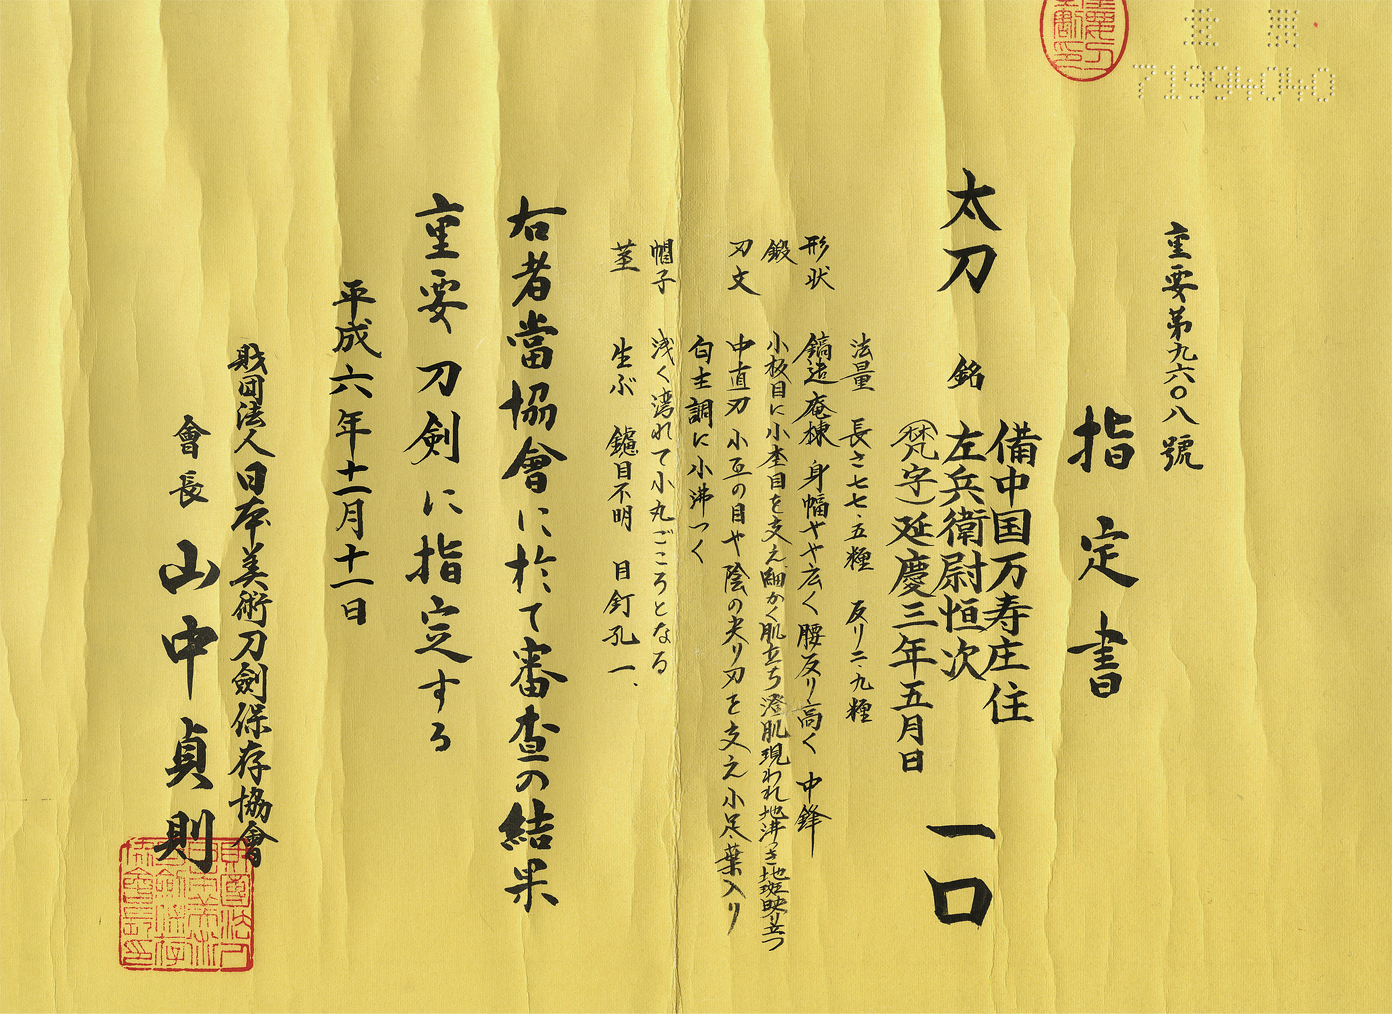 重要
71994040
重要第九六〇八號
指定書
備中国万寿庄住
太刀 銘 左兵衛尉恒次 一口
(梵字)延慶三年五月日
法量 長さ七七・五糎 反り二・九糎
形状 鎬造庵棟 身幅やや広く 腰反り高く 中鋒
鍛 小板目に小杢目を交え細かく肌立ち澄肌現われ地沸つき地斑映り立つ
刃文 中直刃 小互の目や陰の尖り刃を交え小足葉入り
匂主調に小沸つく
帽子 浅く湾れて小丸ごころとなる
茎 生ぶ 鑢目不明 目釘孔一、
右者當協會に於て審査の結果
重要刀剣に指定する
平成六年十一月十一日
財団法人日本美術刀劍保存協會
會長 山中貞則